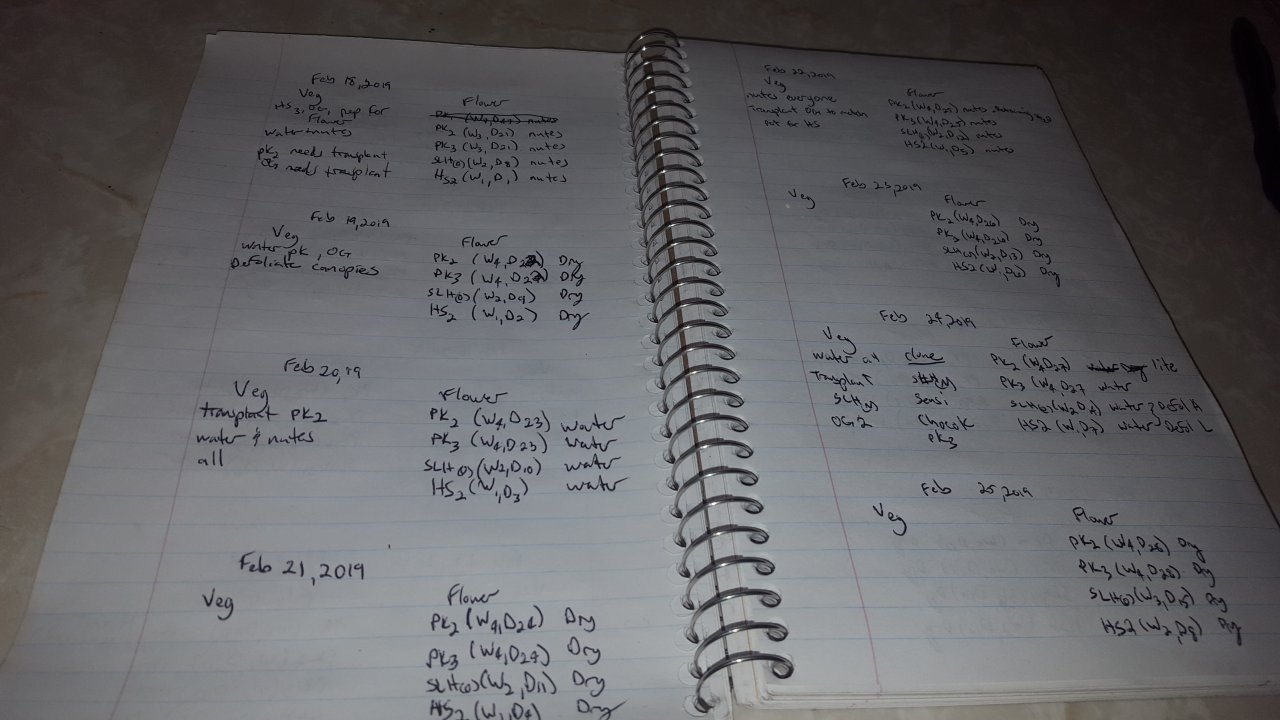 Feb 18, 2019
Veg
HS3, OG, prep for
Flower
water nutes
PK2 needs transplant
OG needs transplant
Flower
PK2 (W3, D21) nutes
PK3 (W3, D21) nutes
SLH(S) (W2, D8) nutes
HS2 (W1, D1) nutes
Feb 19, 2019
Veg
water PK, OG
Defoliate canopies
Flower
PK2 (W4, D22) Dry
PK3 (W4, D22) Dry
SLH(S) (W2, D9) Dry
HS2 (W1, D2) Dry
Feb 20, 19
Veg
transplant PK2
water & nutes
all
Flower
PK2 (W4, D23) water
PK3 (W4, D23) water
SLH(S) (W2, D10) water
HS2 (W1, D3) water
Feb 21, 2019
Veg
Flower
PK2 (W4, D24) Dry
PK3 (W4, D24) Dry
SLH(S) (W2, D11) Dry
HS2 (W1, D4) Dry
Feb 22, 2019
Veg
nutes everyone
Transplant OG to
pot for HS
Flower
PK2 (W4, D25) nutes
PK3 (W4, D25) nutes
SLH(S) (W2, D12) nutes
HS2 (W1, D5) nutes
Feb 23, 2019
Veg
Flower
PK2 (W4, D26) Dry
PK3 (W4, D26) Dry
SLH(S) (W2, D13) Dry
HS2 (W1, D6) Dry
Feb 24, 2019
Veg
water all
Transplant
SLH(S)
OG2
clone
Sensi
Chocok
PK3
Flower
PK2 (W4, D27) lite
PK3 (W4, D27 water
SLH(S) (W2, D14) water Defol H
HS2 (W1, D7) water Defol L
Feb 25, 2019
Veg
Flower
PK2 (W4, D28) Dry
PK3 (W4, D28) Dry
SLH(S) (W3, D15) Dry
HS2 (W2, D8) Dry